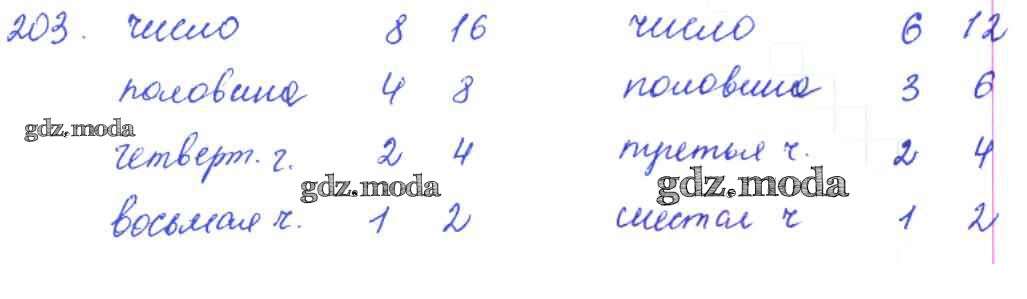 203. число 8 16 число 6 12
половина 4 8 половина 3 6
gdz.moda
четверт. ч. 2 4 третья ч. 2 4
gdz.moda gdz.moda
восьмая ч. 1 2 шестая ч 1 2